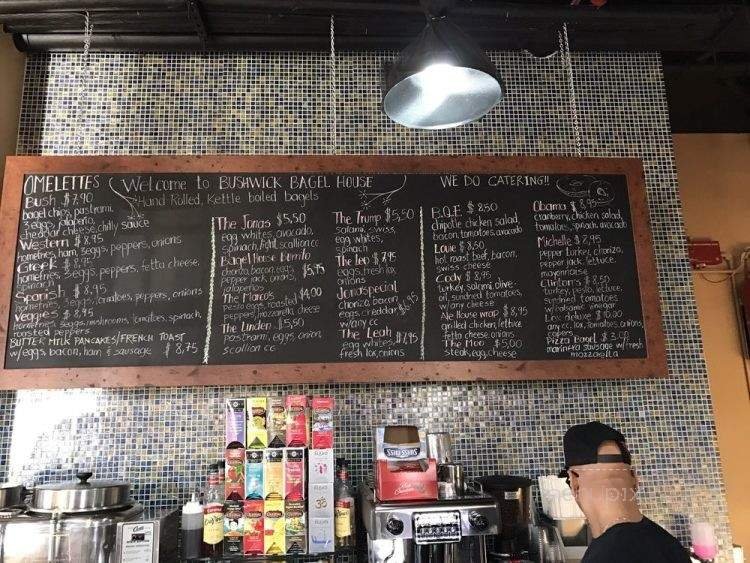 OMELETTES
Bush $7.90
bagel chips, pastrami,
3 eggs, jalapeño,
cheddar cheese, chilly sauce
Western $8.95
homefries, ham, 3eggs, peppers, onions
Greek $8.95
homefries, 3eggs, peppers, fetta cheese,
spinach
Spanish $8.95
homefries, 3eggs, tomatoes, peppers, onions
Veggies $8.95
homefries, 3eggs, mushrooms, tomatoes, spinach,
roasted peppers
BUTTER MILK PANCAKES/FRENCH TOAST
w/eggs, bacon, ham, & sausage $8,75
Welcome to BUSHWICK BAGEL HOUSE
Hand Rolled, Kettle boiled bagels
The Jonas $5,50
egg whites, avocado,
spinach, light, scallion cc
Bagel House Burrito
chorizo, bacon, eggs, $5,75
pepper jack, onions,
jalapeños
The Marcos $4,00
pesto eggs, roasted
peppers, mozzarella, cheese
The Linden $5,50
pastrami, eggs, onion,
scallion cc
The Trump $5,50
salami, swiss,
egg whites,
spinach
The Leo $7,95
eggs, fresh lox,
onions
Jonaspecial
chorizo, bacon,
eggs, cheddar $6,95
w/any cc
The Leah $7,95
egg whites,
fresh lox, onions
WE DO CATERING!!
B.Q.E $8,50
chipotle chicken salad,
bacon, tomatoes, avocado
Louie $8,50
hot roast beef, bacon,
swiss cheese
Cody $8,95
turkey, salami, olive
oil, sundried tomatoes,
w/any cheese
Ale House wrap $8,95
grilled chicken, lettuce,
fetta cheese, onions
The Moo $5,00
steak, egg, cheese
Obama $8,95
cranberry, chicken salad,
tomatoes, spinach, avocado
Michelle $8,95
pepper turkey, chorizo,
pepper jack, lettuce,
mayonnaise
Clinton's $8,50
turkey, pesto, lettuce,
sundried tomatoes
w/balsamic vinegar
Lox deluxe $10.00
any cc, lox, tomatoes, onions,
capers
Pizza Bagel $3.50
marinara sausage w/fresh
mozzarella
SWISS MISS